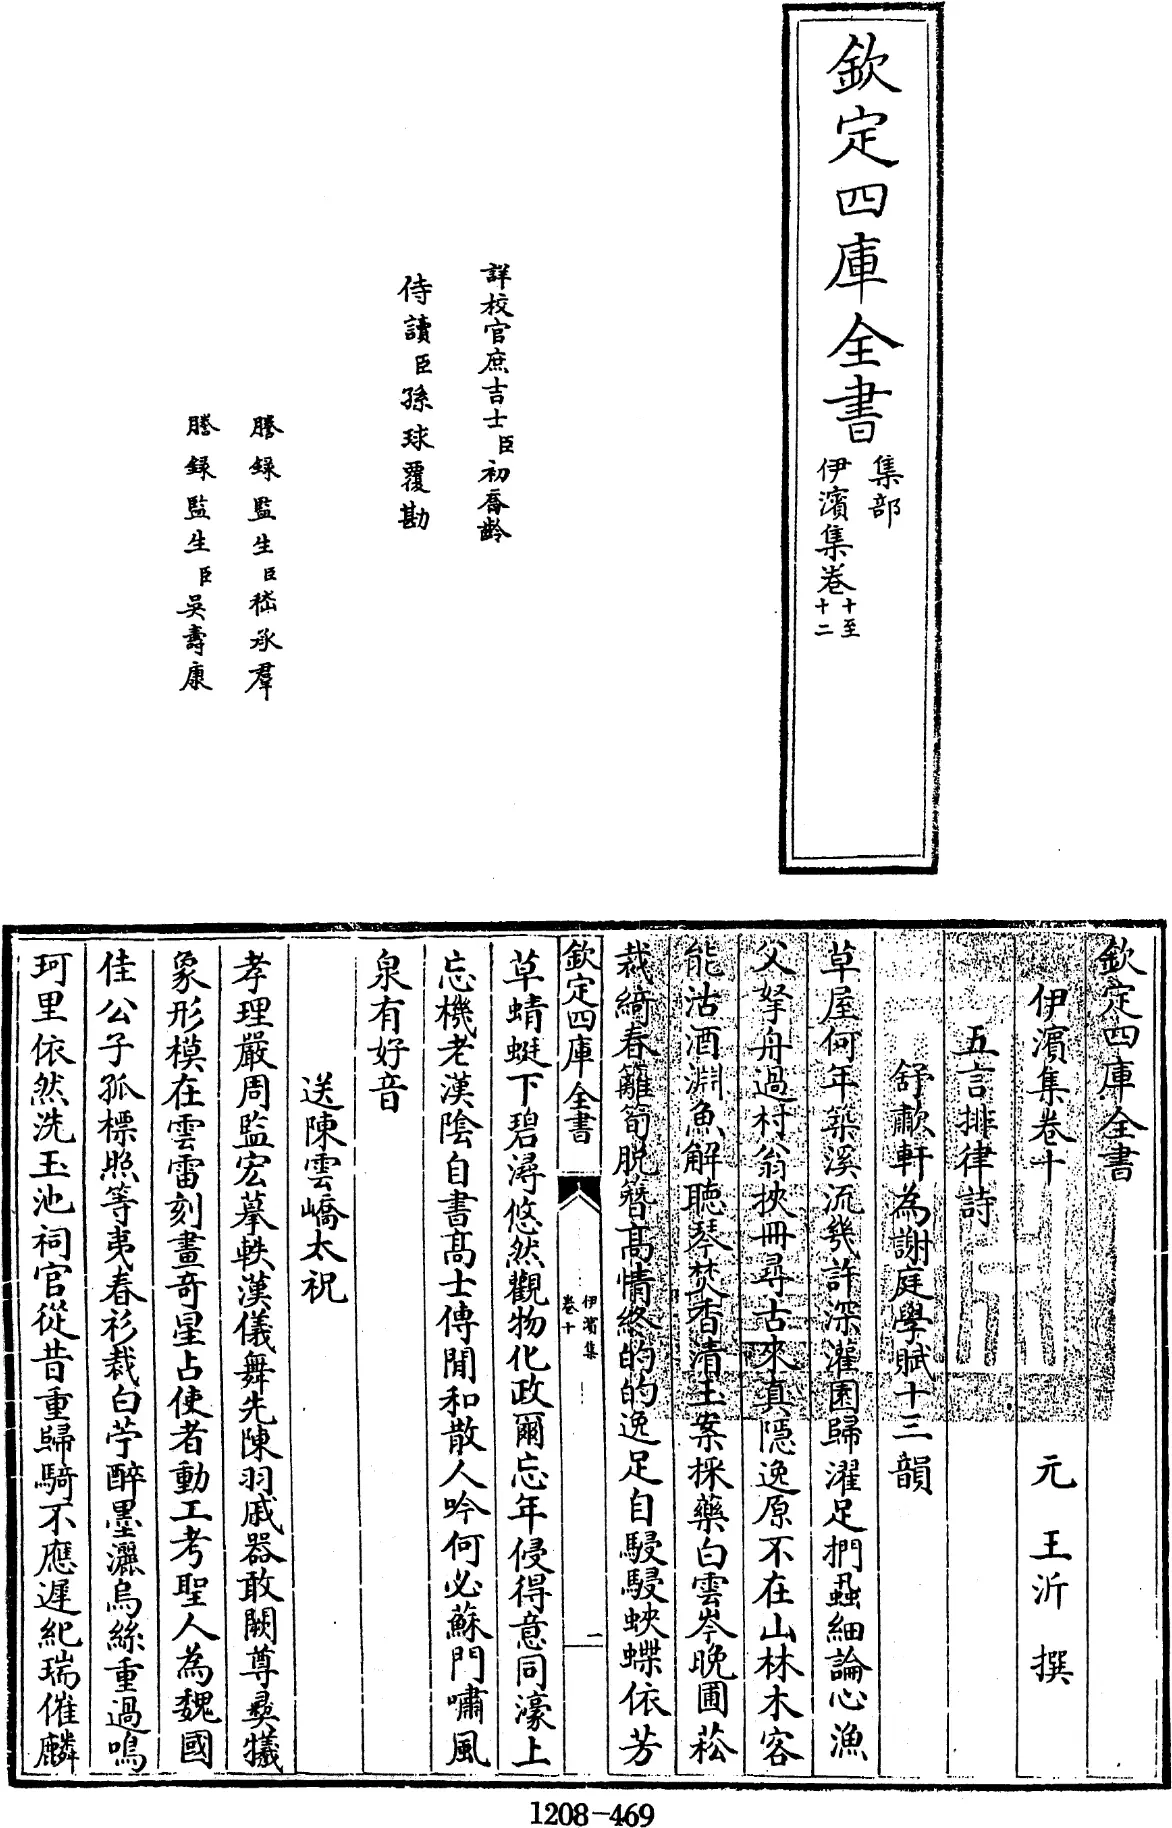 欽定四庫全書
集部
伊濱集卷
十至
十二
詳校官庶吉士臣初喬齡
侍讀臣孫球覆勘
謄錄監生臣嵇承羣
謄錄監生臣吳壽康
欽定四庫全書
伊濱集卷十
元 王沂 撰
五言排律詩
舒嘯軒為謝庭學賦十三韻
草屋何年築溪流幾許深灌園歸濯足捫蝨細論心漁
父拏舟過村翁挾冊尋古來真隱逸原不在山林木客
能沽酒淵魚解聽琴焚香清玉案採藥白雲岑晚圃菘
裁綺春籬筍脫簪高情終的的逸足自駸駸蛺蝶依芳
欽定四庫全書
伊濱集
卷十
一
草蜻蜓下碧潯悠然觀物化政爾忘年侵得意同濠上
忘機老漢陰自書高士傳閒和散人吟何必蘇門嘯風
泉有好音
送陳雲嶠太祝
孝理嚴周監宏摹軼漢儀舞先陳羽戚器敢闕尊彝犧
象形模在雲雷刻畫奇星占使者動工考聖人為魏國
佳公子孤標照等夷春衫裁白苧醉墨灑烏絲重過鳴
珂里依然洗玉池祠官從昔重歸騎不應遲紀瑞催麟
1208-469